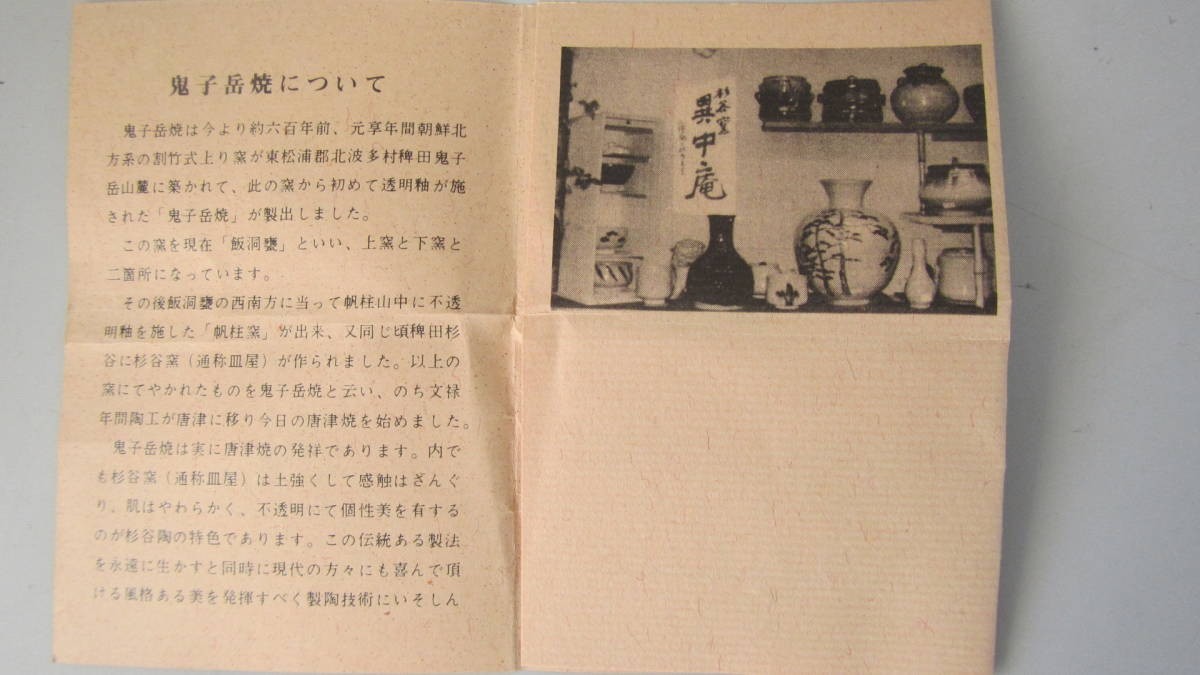 鬼子岳焼について
鬼子岳焼は今より約六百年前、元享年間朝鮮北
方系の割竹式上り窯が東松浦郡北波多村稗田鬼子
岳山麓に築かれて、此の窯から初めて透明釉が施
された「鬼子岳焼」が製出しました。
この窯を現在「飯洞甕」といい、上窯と下窯と
二箇所になっています。
その後飯洞甕の西南方に当って帆柱山中に不透
明釉を施した「帆柱窯」が出来、又同じ頃稗田杉
谷に杉谷窯(通称皿屋)が作られました。以上の
窯にてやかれたものを鬼子岳焼と云い、のち文禄
年間陶工が唐津に移り今日の唐津焼を始めました。
鬼子岳焼は実に唐津焼の発祥であります。内で
も杉谷窯(通称皿屋)は土強くして感触はざんぐ
り。肌はやわらかく、不透明にて個性美を有する
のが杉谷陶の特色であります。この伝統ある製法
を永遠に生かすと同時に現代の方々にも喜んで頂
ける風格ある美を発揮すべく製陶技術にいそしん
杉谷窯
異中庵